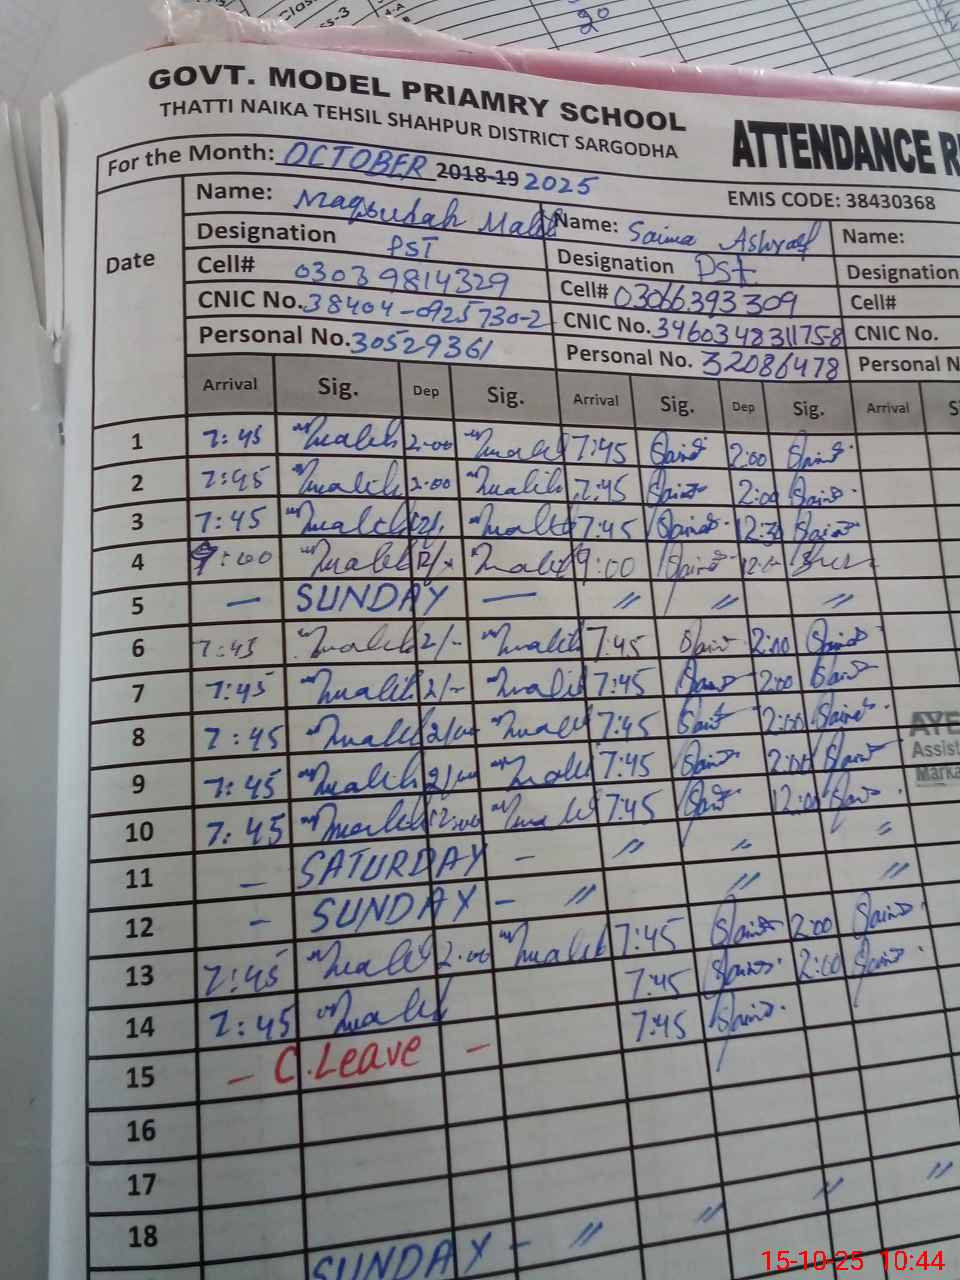 GOVT. MODEL PRIAMRY SCHOOL
THATTI NAIKA TEHSIL SHAHPUR DISTRICT SARGODHA
ATTENDANCE R
For the Month: OCTOBER 2018-19 2025
EMIS CODE: 38430368
Date
Name: Maqsudah Malik Name: Saima Ashraf Name:
Designation PST Designation PST Designation
Cell# 03039814329 Cell# 03066393309 Cell#
CNIC No. 38404-0925730-2 CNIC No. 3460348311758 CNIC No.
Personal No. 30529361 Personal No. 32086478 Personal N
Arrival Sig. Dep Sig. Arrival Sig. Dep Sig. Arrival S
1 7:45 Malik 2:00 Malik 7:45 Saima 2:00 Saima
2 7:45 Malik 2:00 Malik 7:45 Saima 2:00 Saima
3 7:45 Malik 12/. Malik 7:45 Saima 12:30 Saima
4 9:00 Malik 12/x Malik 9:00 Saima
5 — SUNDAY —〃 〃 〃
6 7:45 Malik 2/- Malik 7:45 Saima 2:00 Saima
7 7:45 Malik 2/- Malik 7:45 Saima 2:00 Saima
8 7:45 Malik 2/00 Malik 7:45 Saima 2:00 Saima
9 7:45 Malik 2/00 Malik 7:45 Saima 2:00 Saima
10 7:45 Malik 12:00 Malik 7:45 Saima 12:00 Saima
11 — SATURDAY - 〃 〃 〃
12 - SUNDAY - 〃 〃 〃
13 7:45 Malik 2:00 Malik 7:45 Saima 2:00 Saima
14 7:45 Malik 7:45 Saima 2:00 Saima
15 - C.Leave - 7:45 Saima
16
17
18
SUNDAY - 〃 〃 〃 〃
AYE
Assist
Marka
15-10-25 10:44